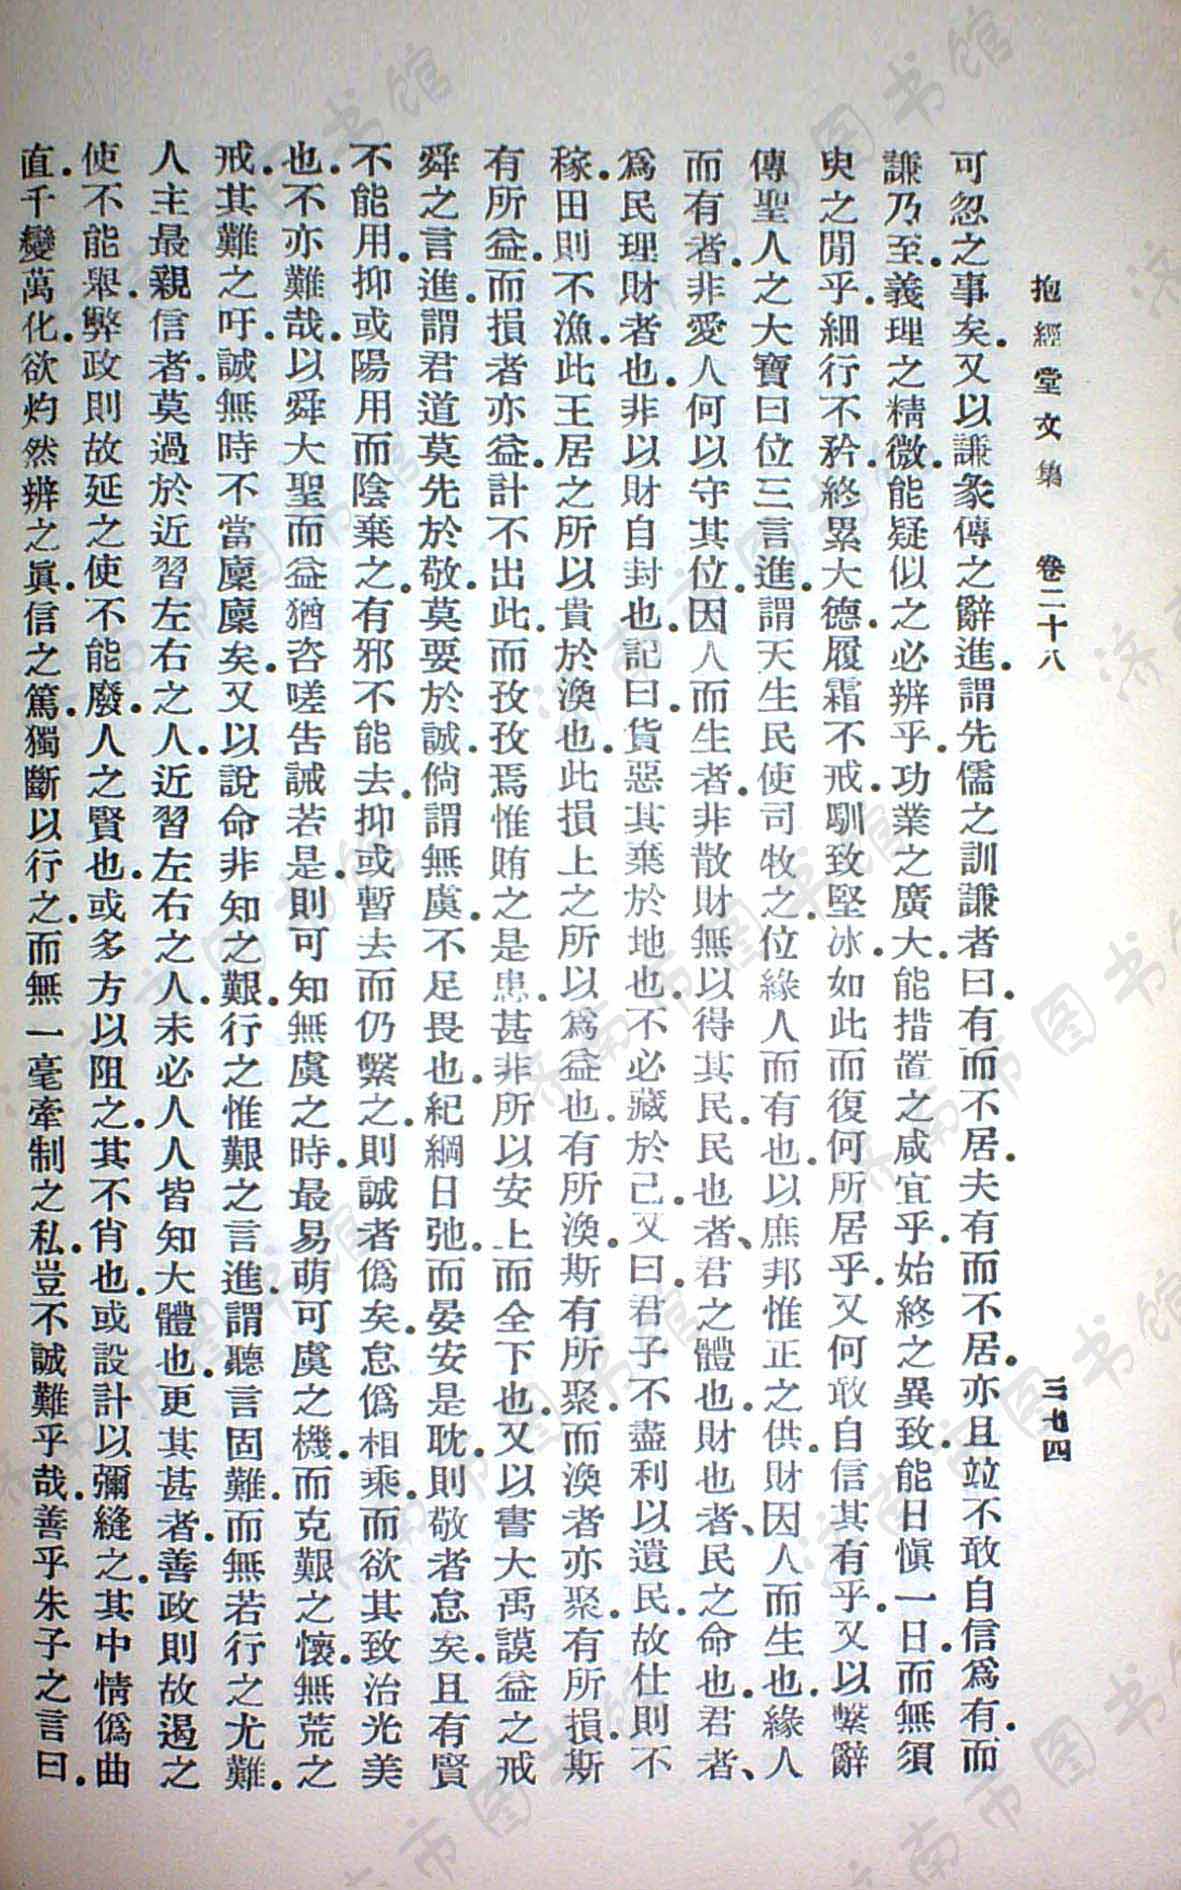 抱經堂文集　卷二十八　三七四
可忽之事矣.又以謙彖傳之辭進.謂先儒之訓謙者曰.有而不居.夫有而不居.亦且竝不敢自信爲有.而
謙乃至.義理之精微.能疑似之必辨乎.功業之廣大.能措置之咸宜乎.始終之異致.能日愼一日.而無須
臾之閒乎.細行不矜.終累大德.履霜不戒.馴致堅冰.如此而復何所居乎.又何敢自信其有乎.又以繫辭
傳聖人之大寶曰位三言進.謂天生民使司牧之.位緣人而有也.以庶邦惟正之供.財因人而生也.緣人
而有者.非愛人何以守其位.因人而生者.非散財無以得其民.民也者、君之體也.財也者、民之命也.君者、
爲民理財者也.非以財自封也.記曰.貨惡其棄於地也.不必藏於己.又曰.君子不盡利以遺民.故仕則不
稼.田則不漁.此王居之所以貴於渙也.此損上之所以爲益也.有所渙.斯有所聚.而渙者亦聚.有所損.斯
有所益.而損者亦益.計不出此.而孜孜焉惟賄之是患.甚非所以安上而全下也.又以書大禹謨益之戒
舜之言進.謂君道莫先於敬.莫要於誠.倘謂無虞.不足畏也.紀綱日弛.而晏安是耽.則敬者怠矣.且有賢
不能用.抑或陽用而陰棄之.有邪不能去.抑或暫去而仍繫之.則誠者僞矣.怠僞相乘.而欲其致治光美
也.不亦難哉.以舜大聖而益猶咨嗟告誡若是.則可知無虞之時.最易萌可虞之機.而克艱之懷.無荒之
戒.其難之吁.誠無時不當廩廩矣.又以說命非知之艱.行之惟艱之言進.謂聽言固難.而無若行之尤難.
人主最親信者.莫過於近習左右之人.近習左右之人.未必人人皆知大體也.更其甚者.善政則故遏之
使不能舉.弊政則故延之使不能廢.人之賢也.或多方以阻之.其不肖也.或設計以彌縫之.其中情僞曲
直.千變萬化.欲灼然辨之眞.信之篤.獨斷以行之.而無一毫牽制之私.豈不誠難乎哉.善乎朱子之言曰.